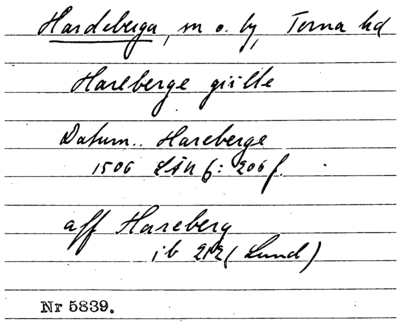 Hardeberga, sn o. by, Torna hd
Hareberge giille
Datum.. Hareberge
1506 LÄU f: 206 f.
aff Hareberg
ib 212 (Lund)
Nr 5839.